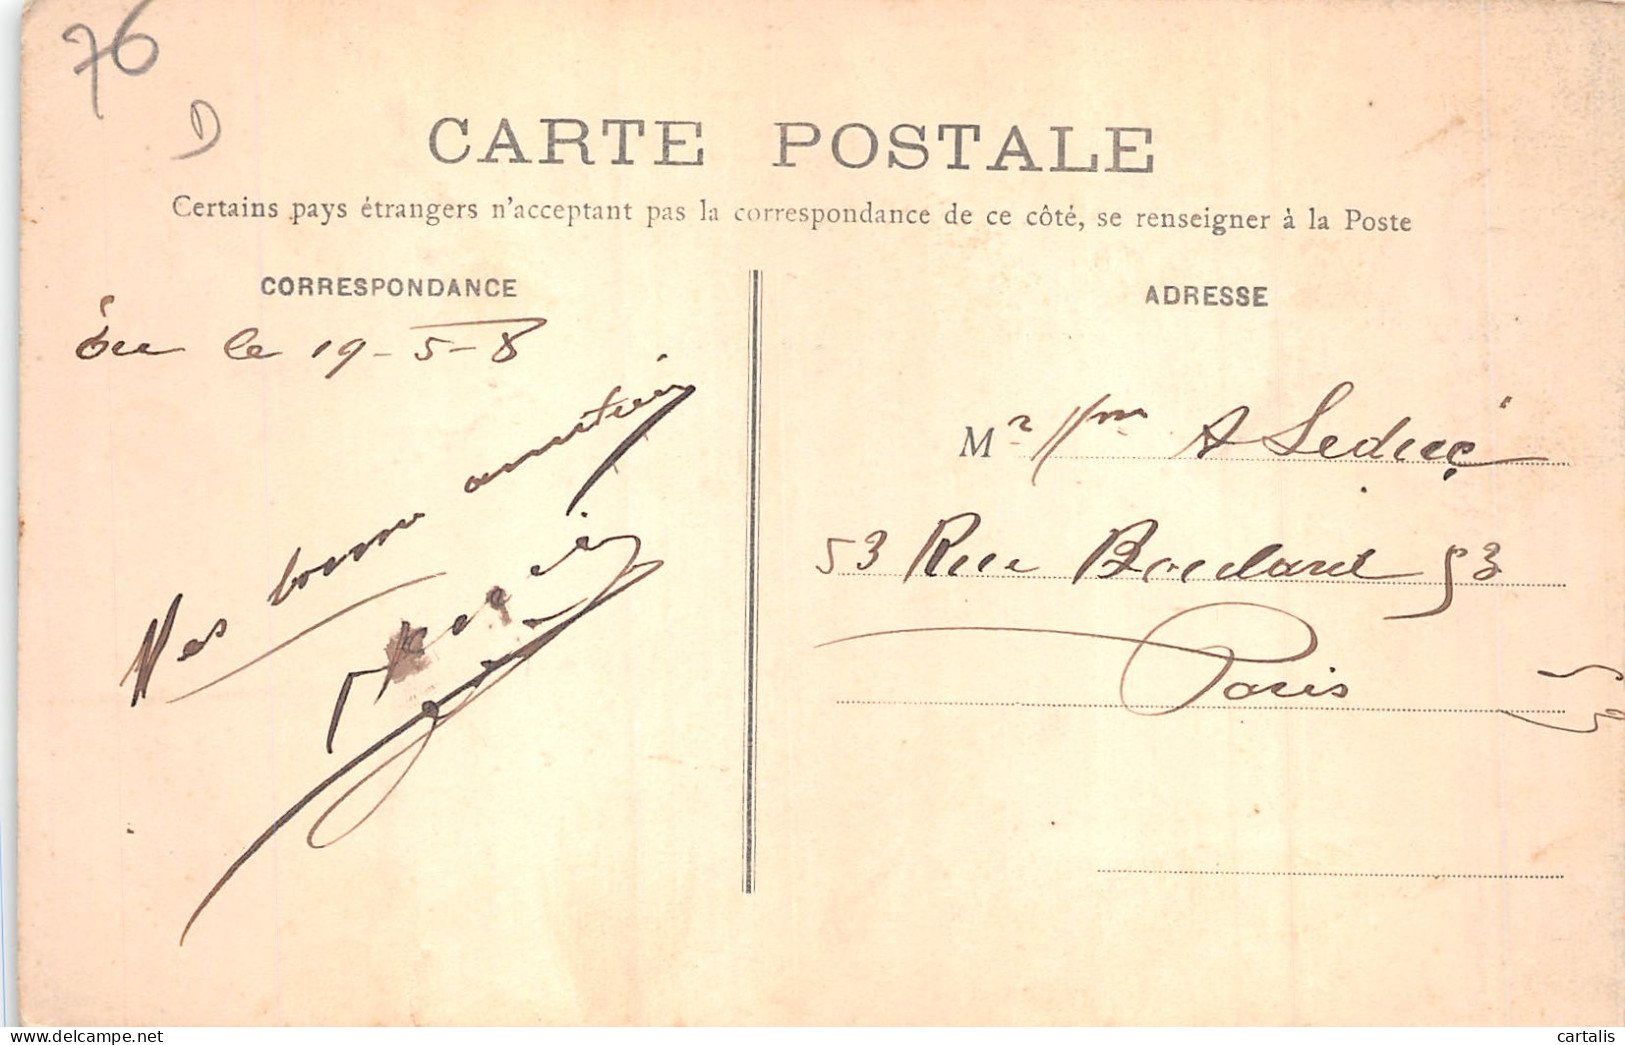 76
D
CARTE POSTALE
Certains pays étrangers n'acceptant pas la correspondance de ce côté, se renseigner à la Poste
CORRESPONDANCE
Eu le 19-5-8
Nos bonnes amitiés
ADRESSE
Mr Mme A Leduc
53 Rue Boulard 53
Paris
cartalis